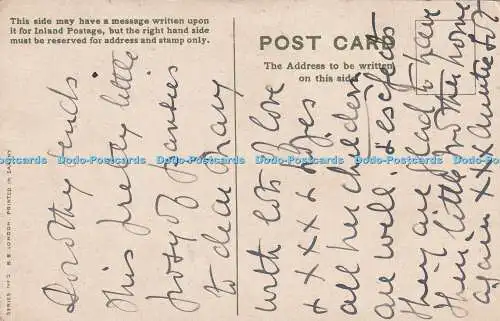 This side may have a message written upon
it for Inland Postage, but the right hand side
must be reserved for address and stamp only.
POST CARD
The Address to be written
on this side
Dorothy sends
this pretty little
posy of pansies
to dear Mary
with lots of love
XXXX & kisses
all her children
are well & expects
they are glad to have
their little mother home
again XXX Auntie Lot
SERIES NO 2 B.B. LONDON. PRINTED IN SAXONY
Dodo-Postcards Dodo-Postcards Dodo-Postcards Dodo-Postcards Dodo-Postcards Dodo-Postcards